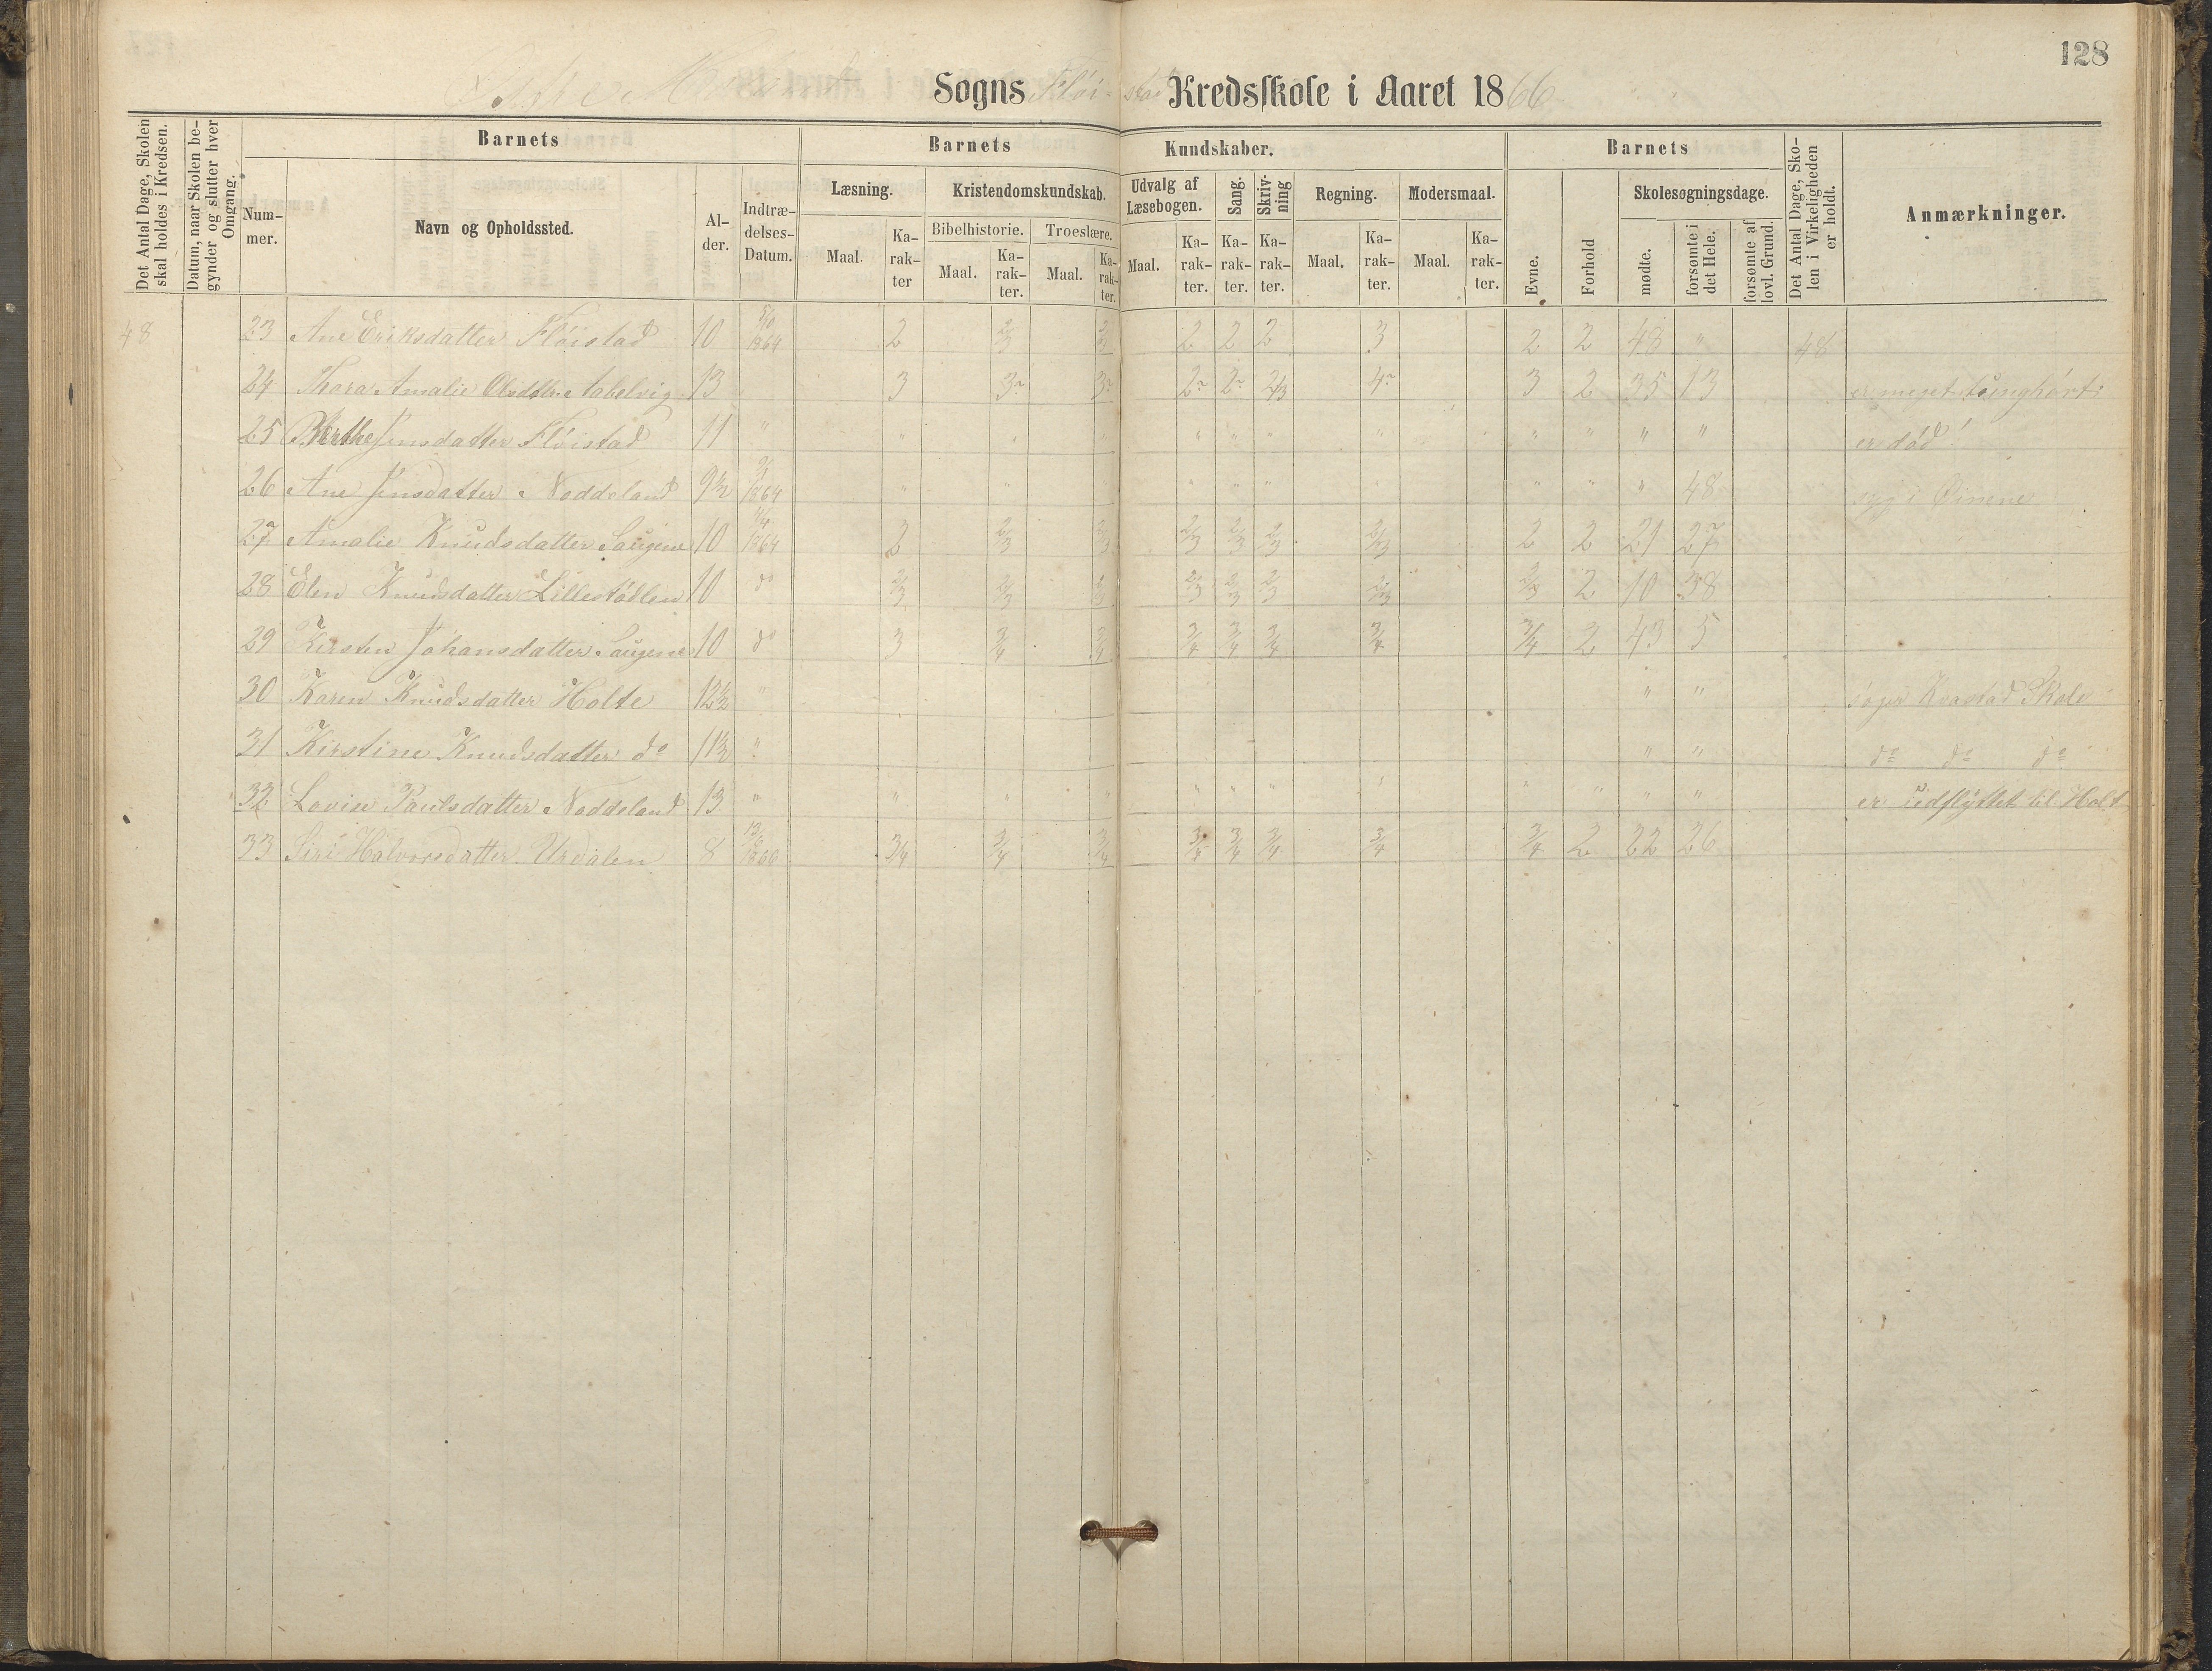 128
Sogns Flöi-stad Kredsskole i Aaret 1866
Det Antal Dage, Skolen skal holdes i Kredsen.
Datum, naar Skolen begynder og slutter hver Omgang.
Barnets
Barnets Kundskaber.
Barnets
Det Antal Dage, Skolen i Virkeligheden er holdt.
Anmærkninger.
Nummer.
Navn og Opholdssted.
Alder.
Indtrædelses-Datum.
Læsning.
Kristendomskundskab.
Udvalg af Læsebogen.
Sang.
Skrivning
Regning.
Modersmaal.
Evne.
Forhold
Skolesøgningsdage.
Bibelhistorie.
Troeslære.
mødte.
forsømte i det Hele.
forsømte af lovl. Grund.
Maal. Karakter Maal. Karakter. Maal. Karakter. Maal. Karakter. Karakter. Karakter. Maal. Karakter. Maal. Karakter.
48 23 Ane Eriksdatter Flöistad 10 1864 2 2/3 2 2 2 3 2 2 48 " 48
24 Thora Amalie Olsdtr. Aabelvig 13 3 3 3 2 2 2/3 4 3 2 35 13 er meget tunghört
25 Birthe Jensdatter Flöistad 11 " " " " " " " " " " " " er död!
26 Ane Jensdatter Noddeland 9½ 1864 " " " " " " " " 48 syg i Öinene
27 Amalie Knudsdatter Saugene 10 1864 2 2/3 2/3 2/3 2/3 2/3 2/3 2 2 21 27
28 Elen Knudsdatter Lillestödlen 10 do 2/3 2/3 2/3 2/3 2/3 2/3 2/3 2/3 2 10 38
29 Kirsten Johansdatter Saugene 10 do 3 3/4 3/4 3/4 3/4 3/4 3/4 3/4 2 43 5
30 Karen Knudsdatter Holte 12½ " " " söger Kvastad Skole
31 Kirstine Knudsdatter do 11½ " " " do do do
32 Lovise Paulsdatter Noddeland 13 " " " " " " " " " " " " er udflyttet til Holt
33 Siri Halvorsdatter Urdalen 8 3/4 3/4 3/4 3/4 3/4 3/4 3/4 3/4 2 22 26